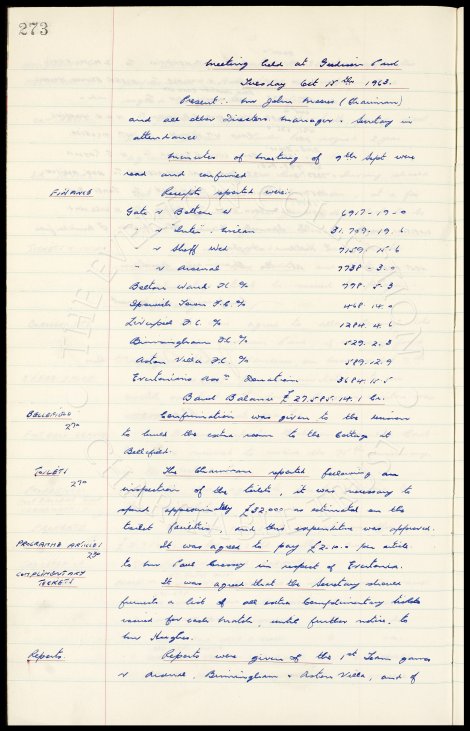 273
Meeting held at Goodison Park
Tuesday Oct 1963.
Present:- Mr John Moores (Chairman)
and all other Directors Manager & Secretary in
attendance
Minutes of meeting of 9th Sept were
read and confirmed
FINANCE Receipts reported were:-
Gate v Bolton W 6917-19-0
" v "Inter" Milan 31.709-19.6
" v Sheff Wed 7159.15.6
" v Arsenal 7738-3.9
Bolton Wand F.C. % 778.5.3
Ipswich Town F.C. % 468.14.0
Liverpool F.C. % 1284.4.6
Birmingham F.C. % 529.2.3
Aston Villa F.C. % 589.12.9
Evertonians Assn Donation 3684.15.5
Bank Balance £27.585.14.1 Cr.
BELLEFIELD Confirmation was given to the decision
270 to build the extra room to the Cottage at
Bellefield.
TOILETS The Chairman reported following an
270 inspection of the toilets, it was necessary to
spend approximately £32,000 as estimated on the
toilet facilities, and this expenditure was approved.
PROGRAMME ARTICLES It was agreed to pay £2.10.0 per article
to Mr Paul in respect of Evertonia.
COMPLIMENTARY TICKETS It was agreed that the Secretary should
furnish a list of all extra Complimentary tickets
issued for each match, until further notice, to
Mr Hughes.
Reports. Reports were given of the 1st Team games
v Arsenal, Birmingham & Aston Villa, and of